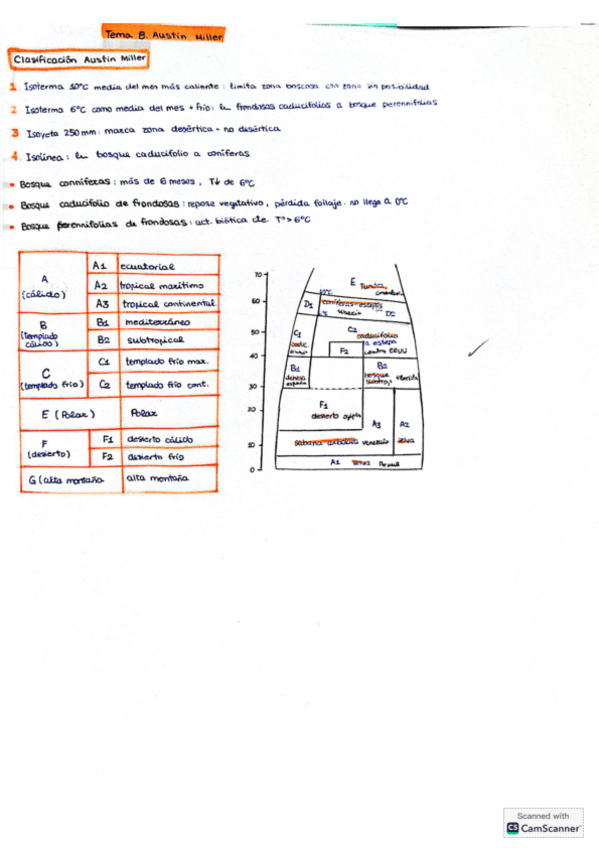 Tema 8. Austin Miller
Clasificación Austin Miller
1 Isoterma 10°C media del mes más caliente: limita zona boscosa con zona sin posibilidad
2 Isoterma 6°C como media del mes + frío: frondosas caducifolios a bosque perennifolias
3 Isoyeta 250 mm: marca zona desértica - no desértica
4. Isolínea: bosque caducifolio a coníferas
• Bosque conníferas: más de 6 meses, T↓ de 6°C
• Bosque caducifolio de frondosas: reposo vegetativo, pérdida follaje. no llega a 0°C
• Bosque perennifolias de frondosas: act. biótica de T°> 6°C
A (cálido)
A1 ecuatorial
A2 tropical marítimo
A3 tropical continental
B (templado cálido)
B1 mediterráneo
B2 subtropical
C (templado frío)
C1 templado frío mar.
C2 templado frío cont.
E (Polar) Polar
F (desierto)
F1 desierto cálido
F2 desierto frío
G (alta montaña alta montaña
70
60
50
40
30
20
10
0
E Tundra
10°C
D1 coníferas-estepas D2
C1
C2 caducifolio
a estepa
F2 centro EEUU
B1
B2
bosque
subtrop
F1
desierto
A3 A2
sabana
selva
A1
Scanned with
CS CamScanner